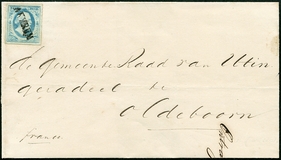 de Gemeente Raad van Utin
geradeel te
Oldeboorn
franco